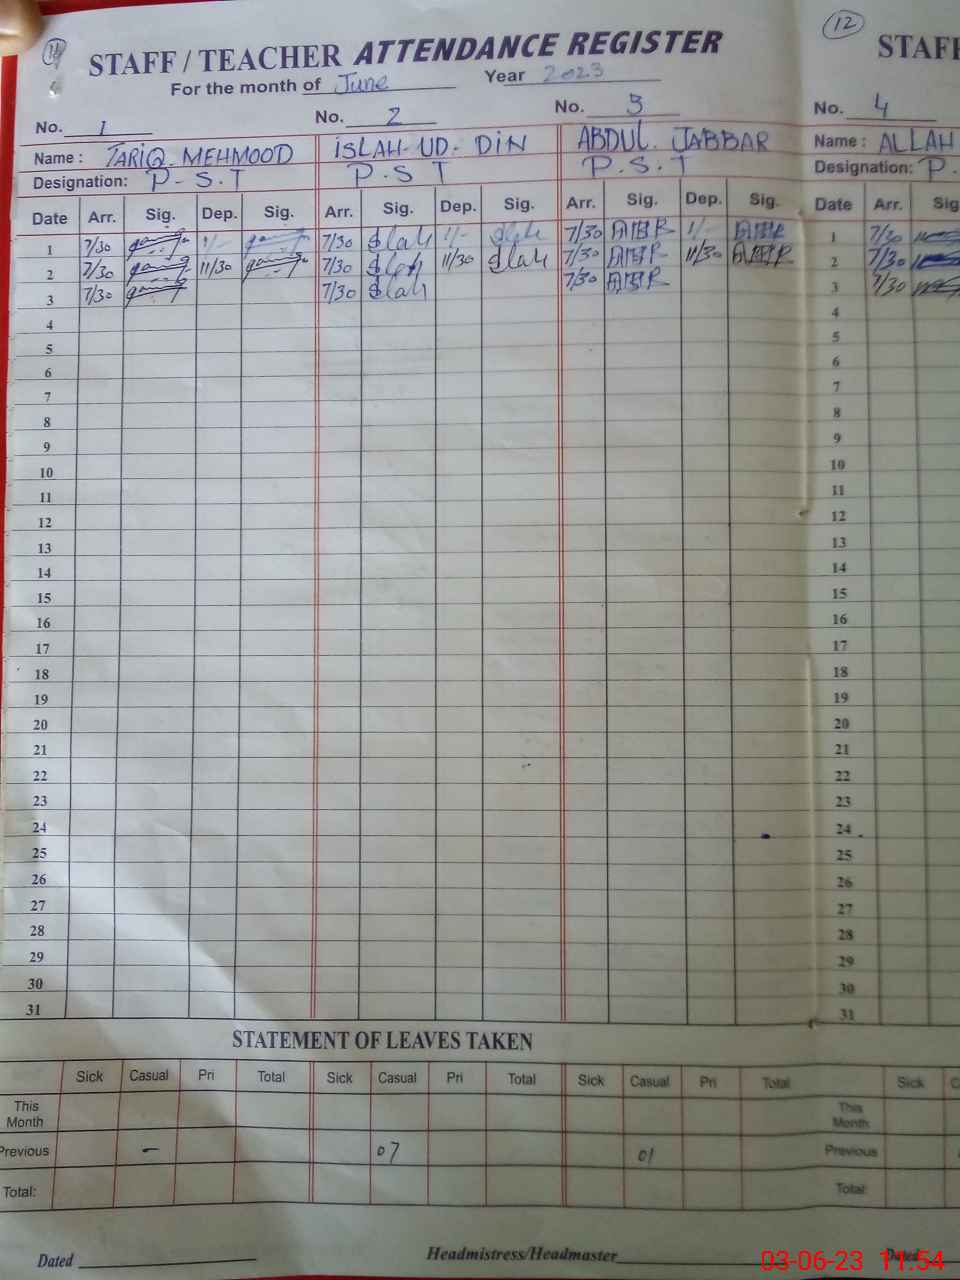 12
STAFF / TEACHER ATTENDANCE REGISTER
STAFF
For the month of June Year 2023
No. 1 No. 2 No. 3 No. 4
Name : TARIQ. MEHMOOD ISLAH-UD-DIN ABDUL. JABBAR Name : ALLAH
Designation: P-S.T P.S T P.S.T Designation: P.
Date Arr. Sig. Dep. Sig. Arr. Sig. Dep. Sig. Arr. Sig. Dep. Sig. Date Arr. Sig
1 7/30 1/- 7/30 Islah 1/- Islah 7/30 1/- 1 7/30
2 7/30 11/30 7/30 Islah 11/30 Islah 7/30 11/30 2 7/30
3 7/30 7/30 Islah 7/30 3 7/30
4 4
5 5
6 6
7 7
8 8
9 9
10 10
11 11
12 12
13 13
14 14
15 15
16 16
17 17
18 18
19 19
20 20
21 21
22 22
23 23
24 24
25 25
26 26
27 27
28 28
29 29
30 30
31 31
STATEMENT OF LEAVES TAKEN
Sick Casual Pri Total Sick Casual Pri Total Sick Casual Pri Total Sick C
This Month This Month
Previous - 07 01 Previous
Total: Total
Dated Headmistress/Headmaster Dated
03-06-23 11:54